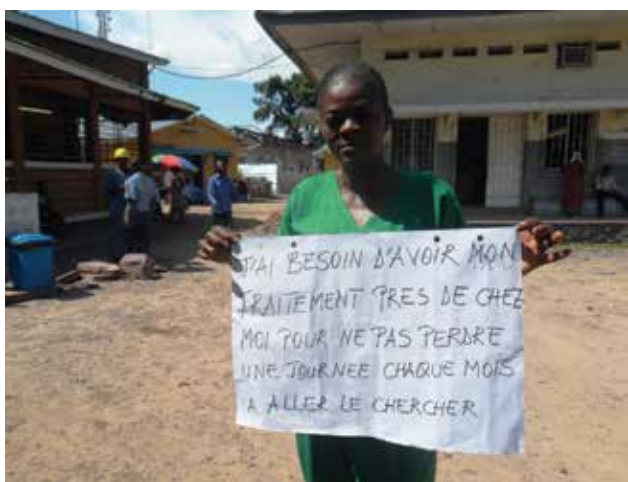 J'AI BESOIN D'AVOIR MON
TRAITEMENT PRES DE CHEZ
MOI POUR NE PAS PERDRE
UNE JOURNEE CHAQUE MOIS
A ALLER LE CHERCHER